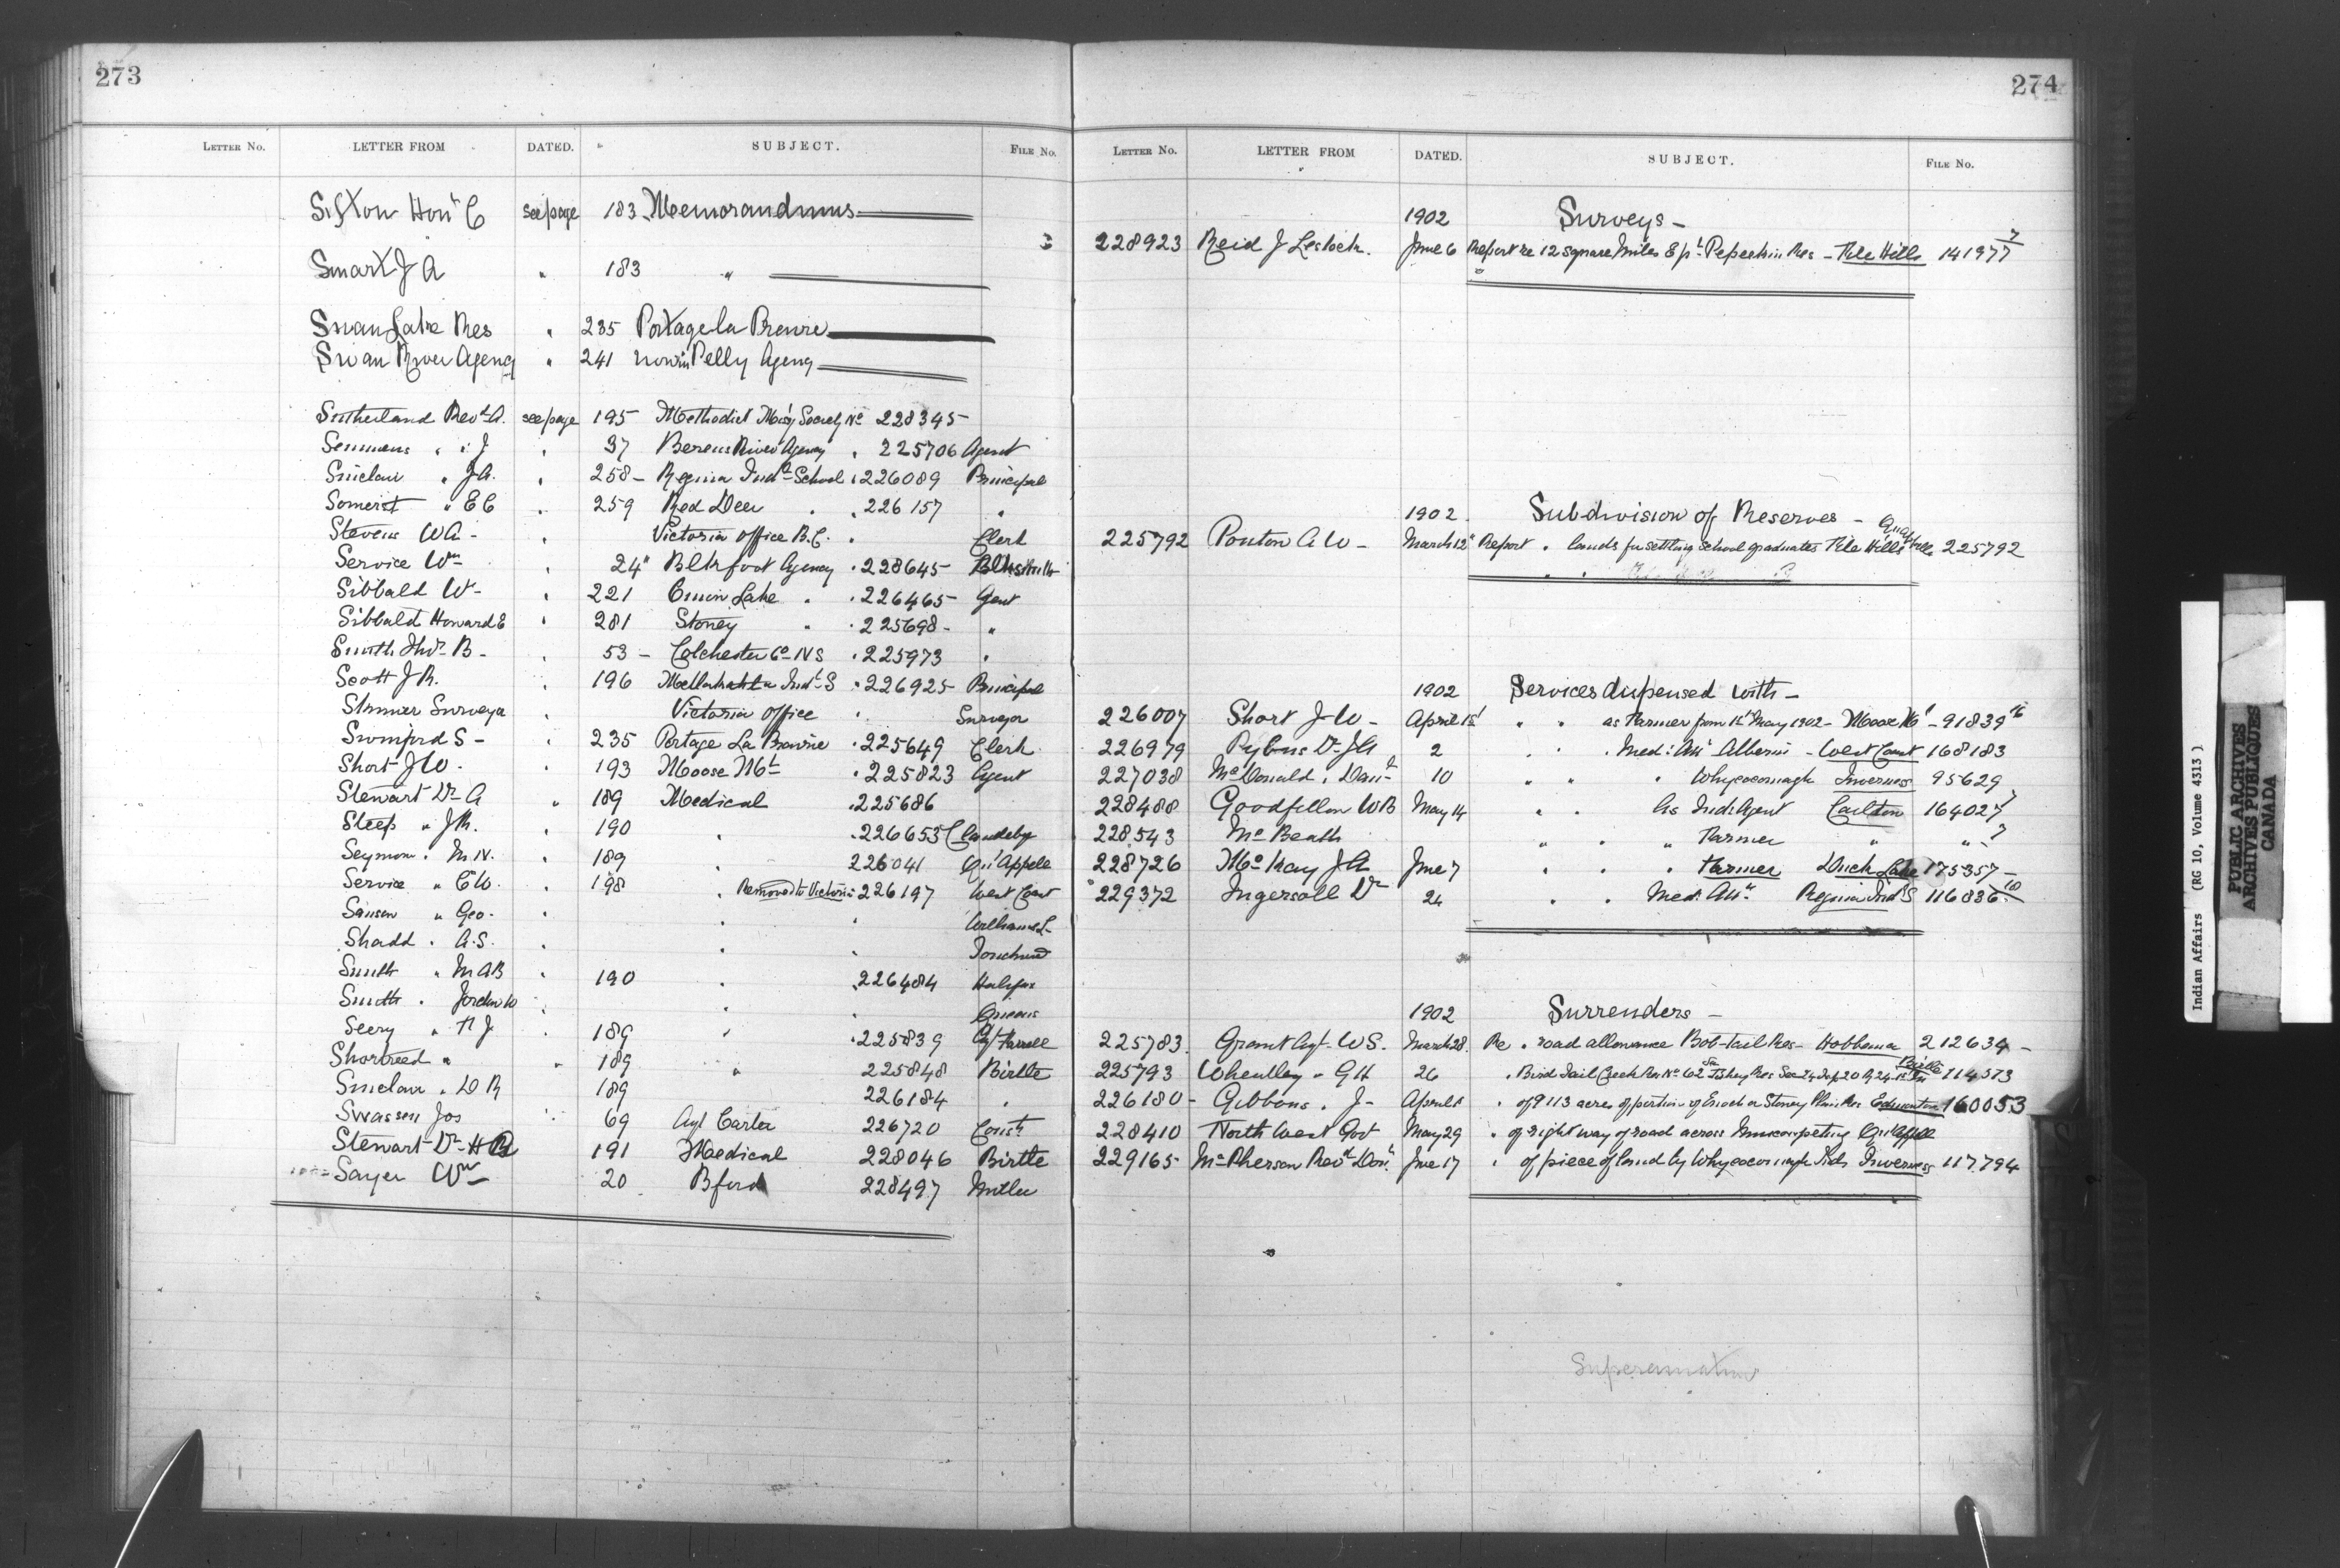 273
LETTER NO. LETTER FROM DATED. SUBJECT. FILE NO.
Sifton Hon C see page 183 Memorandums
Smart J A " 183 "
Swan Lake Res " 235 Portage la Prairie
Swan River Agency " 241 now in Pelly Agency
Sutherland Revd A. see page 195 Methodist Missy Society No 228345
Semmens " " J " 37 Berens River Agency " 225706 Agent
Sinclair " J.A. " 258 Regina Indl School " 226089 Principal
Somerset " E C " 259 Red Deer " " 226157 "
Stevens W A - " Victoria Office B.C. " Clerk
Service Wm " 24 Blkfoot Agency " 228645 Blksmith
Sibbald W - " 221 Onion Lake " " 226465 Agent
Sibbald Howard E " 281 Stoney " " 225698 - "
Smith Thos B - " 53 - Colchester Co N S " 225973 "
Scott J R. " 196 Metlakahtla Indl S " 226925 Principal
Skinner Surveyor " Victoria Office " Surveyor
Swinford S - " 235 Portage La Prairie " 225649 Clerk
Short J W - " 193 Moose Mt " 225823 Agent
Stewart Dr A " 189 Medical " 225686
Steep " J R. " 190 " " 226653 Clandeby
Seymour " M.N. " 189 226041 Qu'Appelle
Service " C W. " 198 " Removed to Victoria 226197 West Coast
Sanson " Geo. " " " Williams L
Shadd " A.S. " " " Touchwood
Smith " M A B " 190 " 226484 Halifax
Smith " Jordan W " " " Queens
Seery " H J " 189 " 225839 Agt Farrell
Shortreed " " 189 " 225848 Birtle
Sinclair " D R 189 226184 "
Swasson Jos " 69 Agt Carter 226720 Const
Stewart Dr H A 191 Medical 228046 Birtle
Sayer Wm 20 Bford 228497 Miller
274
LETTER NO. LETTER FROM DATED. SUBJECT. FILE NO.
1902 Surveys -
228923 Reid J Lestock. June 6 Report re 12 square miles E pt Pepeekis Res - File Hills 141977 7
1902 Subdivision of Reserves -
225792 Ponton A W - March 12 Report " lands for settling school graduates File Hills Qu'Appelle 225792
1902 Services dispensed with -
226007 Short J W - April 1st " " as Farmer from 1st May 1902 - Moose Mt - 91839 16
226979 Pybus Dr J G 2 " " " Med: Att Alberni - West Coast 168183
227038 McDonald " Danl 10 " " " Whycocomagh Inverness 95629
228488 Goodfellow W B May 14 " " As Ind: Agent Carlton 164027
228543 McBeath " " " Farmer " "
228726 McKay J A June 7 " " " Farmer Duck Lake 175357 -
229372 Ingersoll Dr 24 " " Med. Att " Regina Indl S 116836 10
1902 Surrenders -
225783 Grant Agt W S. March 28 Re " road allowance Bob-tail Res - Hobbema 212634 -
225793 Wheatley " G H 26 " Bird Tail Creek Res No 62 Fishing Res Sec 24 Tp 20 R 24 Birtle 114573
226180 - Gibbons " J - April " of 9113 acres of portion of Enoch or Stoney Plain Res Edmonton 160053
228410 North West Govt May 29 " of right way of road across Muscowpetung Qu'Appelle
229165 McPherson Revd Don June 17 " of piece of land by Whycocomagh Inds Inverness 117794
Superannuation
Indian Affairs (RG 10, Volume 4313)
PUBLIC ARCHIVES
ARCHIVES PUBLIQUES
CANADA